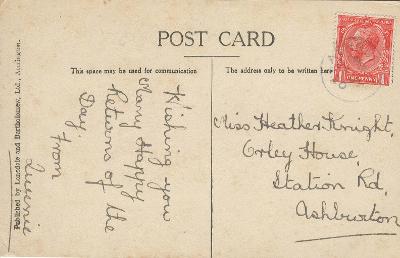 POST CARD
This space may be used for communication
The address only to be written here
Published by Lonsdale and Bartholomew, Ltd., Accrington.
Wishing you
Many Happy
Returns of the
Day.
From
Queenie
Miss Heather Knight,
Orley House,
Station Rd,
Ashburton
ONE PENNY